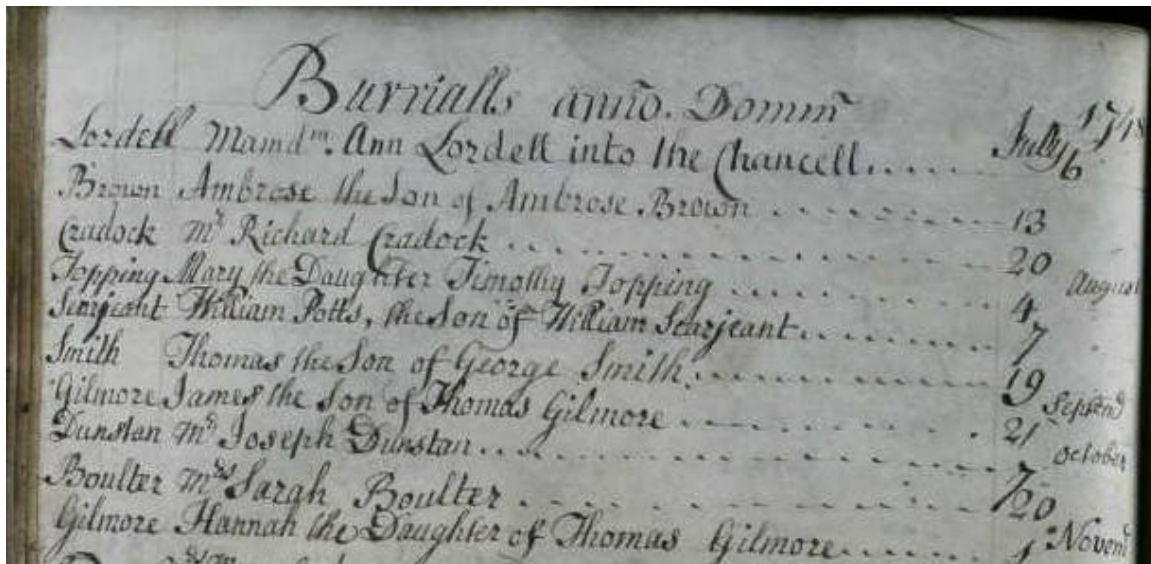 Burrialls anno. Domm
Lordell Mamdm. Ann Lordell into the Chancell..... July 16
Brown Ambrose the Son of Ambrose Brown .......... 13
Cradock Mr Richard Cradock .......... 20
Topping Mary the Daughter Timothy Topping .......... 4 August
Searjeant William Potts, the Son of William Searjeant.......... 7
Smith Thomas the Son of George Smith.......... 19
Gilmore James the Son of Thomas Gilmore .......... 21 Septemd
Dunstan Mr Joseph Dunstan.......... 7 October
Boulter Mrs Sarah Boulter .......... 20
Gilmore Hannah the Daughter of Thomas Gilmore..... 1 Novemd